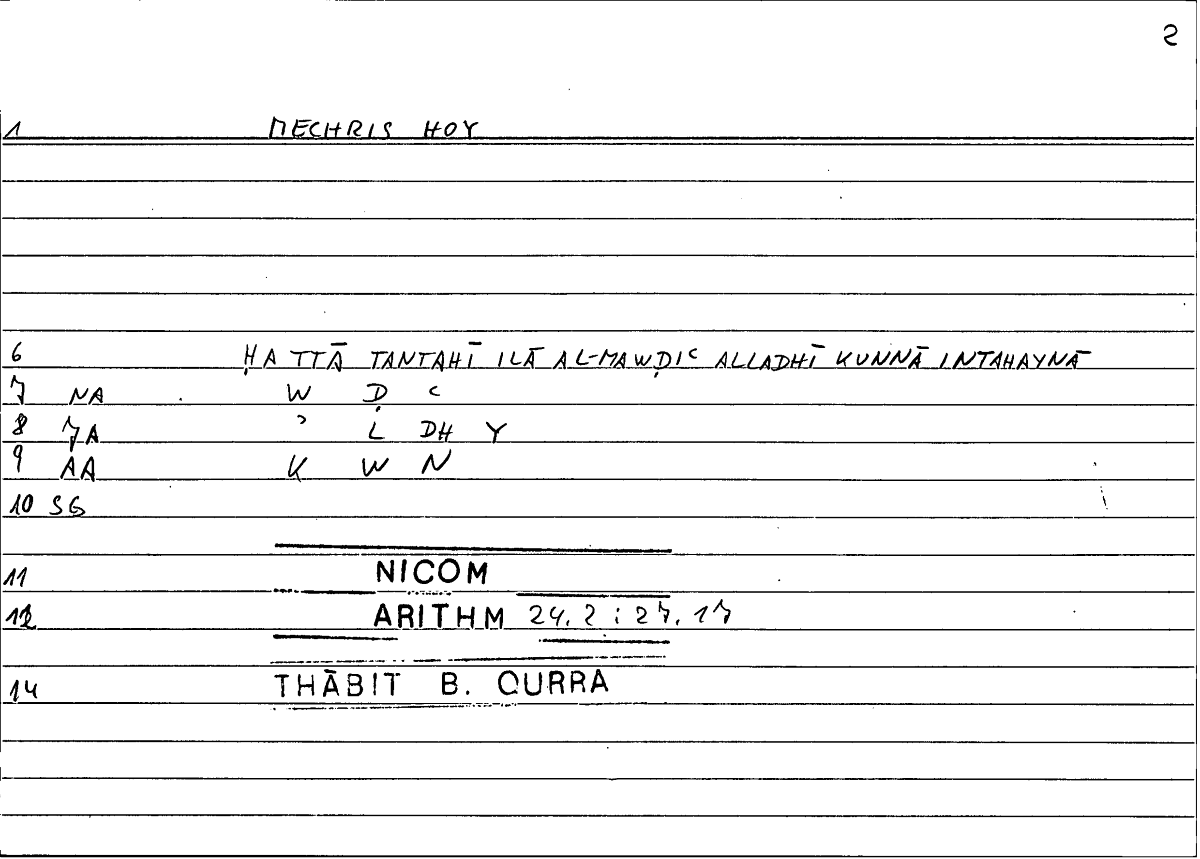 2
1 MECHRIS HOY
6 ḤATTĀ TANTAHĪ ILĀ AL-MAWḌIʿ ALLADHĪ KUNNĀ INTAHAYNĀ
7 NA W Ḍ ʿ
8 7A ʾ L DH Y
9 AA K W N
10 SG
11 NICOM
12 ARITHM 24.2 ; 27.17
14 THĀBIT B. QURRA